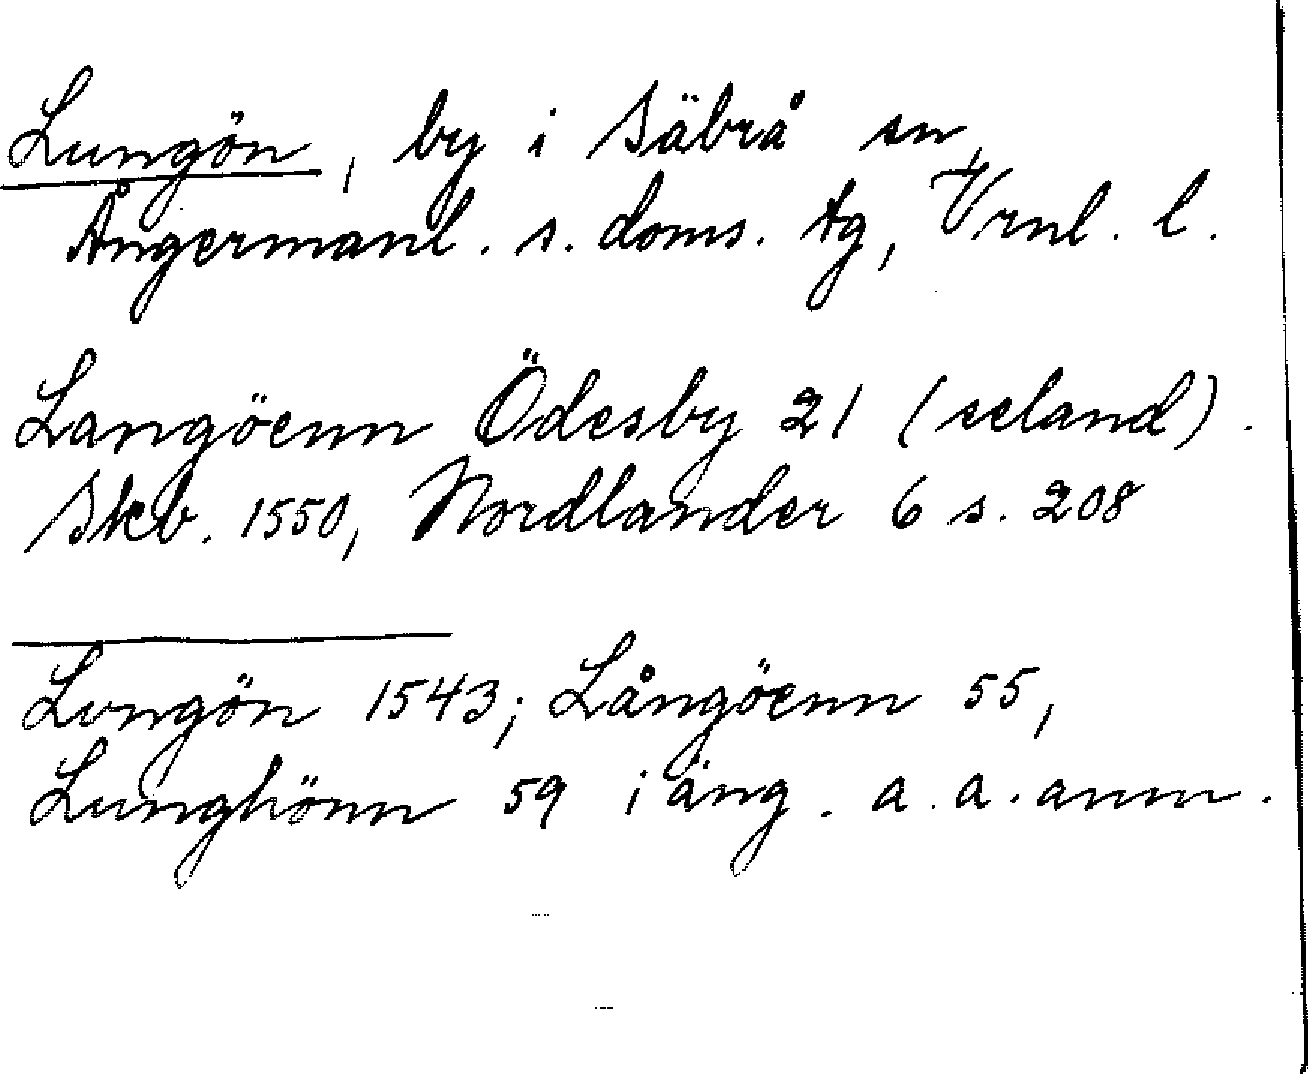 Lungön, by i Säbrå sn,
Ångermanl. s. doms. tg, Vrnl. l.
Langöenn Ödesby 21 (seland).
Skb. 1550, Nordlander 6 s. 208
Longön 1543; Långöenn 55,
Lunghönn 59 i äng. a. a. anm.